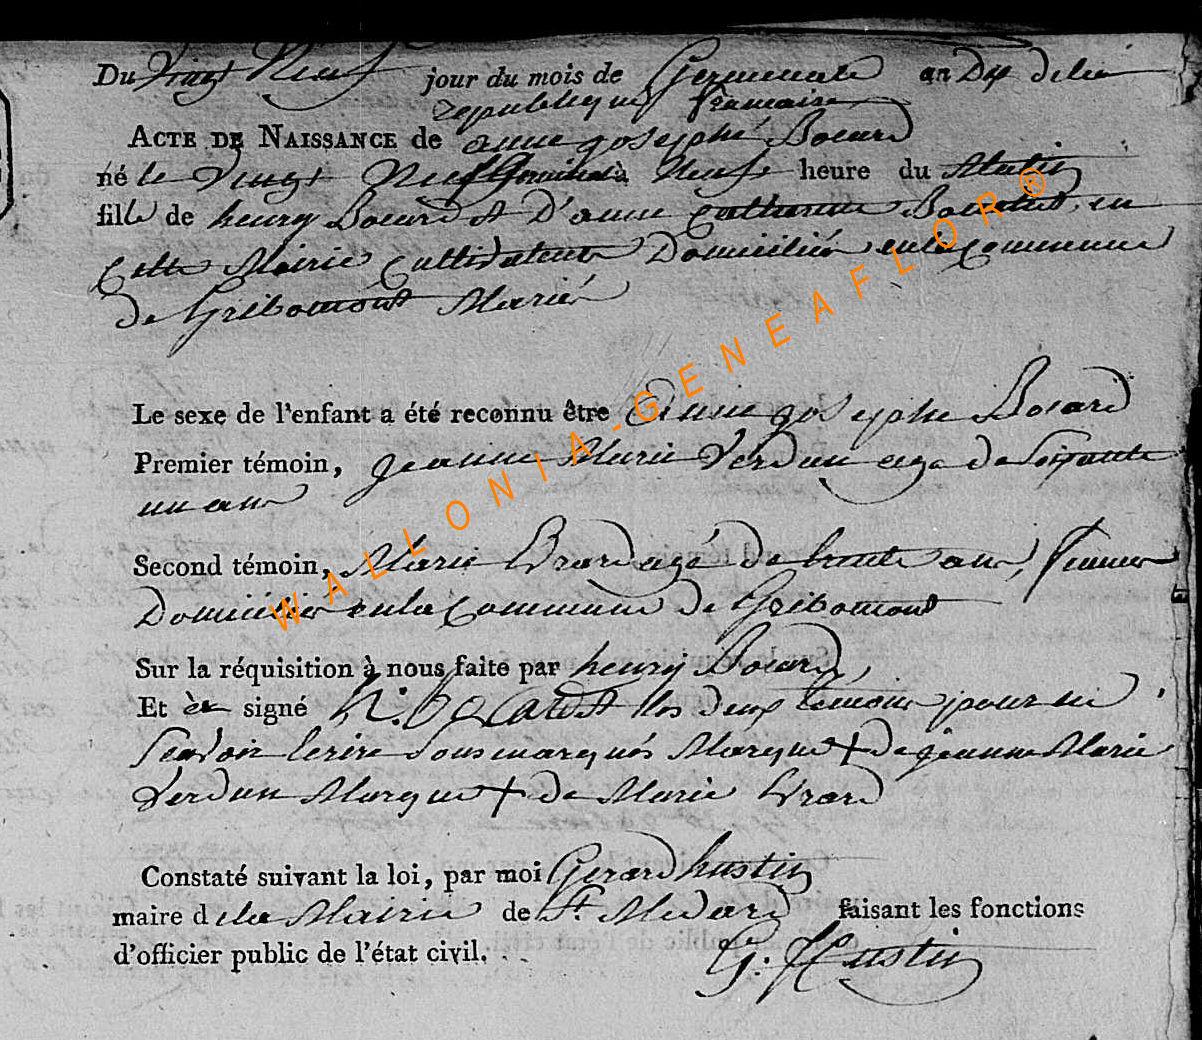 Du Vingt Neuf jour du mois de Germinale an Dix de la
republique francaise
ACTE DE NAISSANCE de anne gosephe Bocard
né le Vingt Neuf Germinal à Neufe heure du Matin
fille de henry Bocard et D'anne Catherine en
Cette Mairie Cultivateure Domiciliés en la Commune
de Gribomont Mariés
Le sexe de l'enfant a été reconnu être Anne gosephe Bocard
Premier témoin, Jeanne Marie Verdun age de Soixante
un ans
Second témoin, Marie Evrard agé de trente ans,
Domiciliés en la Commune de Gribomont
Sur la réquisition à nous faite par henry Bocard,
Et signé h: bocard et les deux temoins pour ne
Scavoir Ecrire Sousmarqués Marque + de jeanne Marie
Verdun Marque + de Marie Evrard
Constaté suivant la loi, par moi Gerard hustin
maire de la Mairie de St. Medard faisant les fonctions
d'officier public de l'état civil.
G: Hustin
WALLONIA-GENEAFLOR®